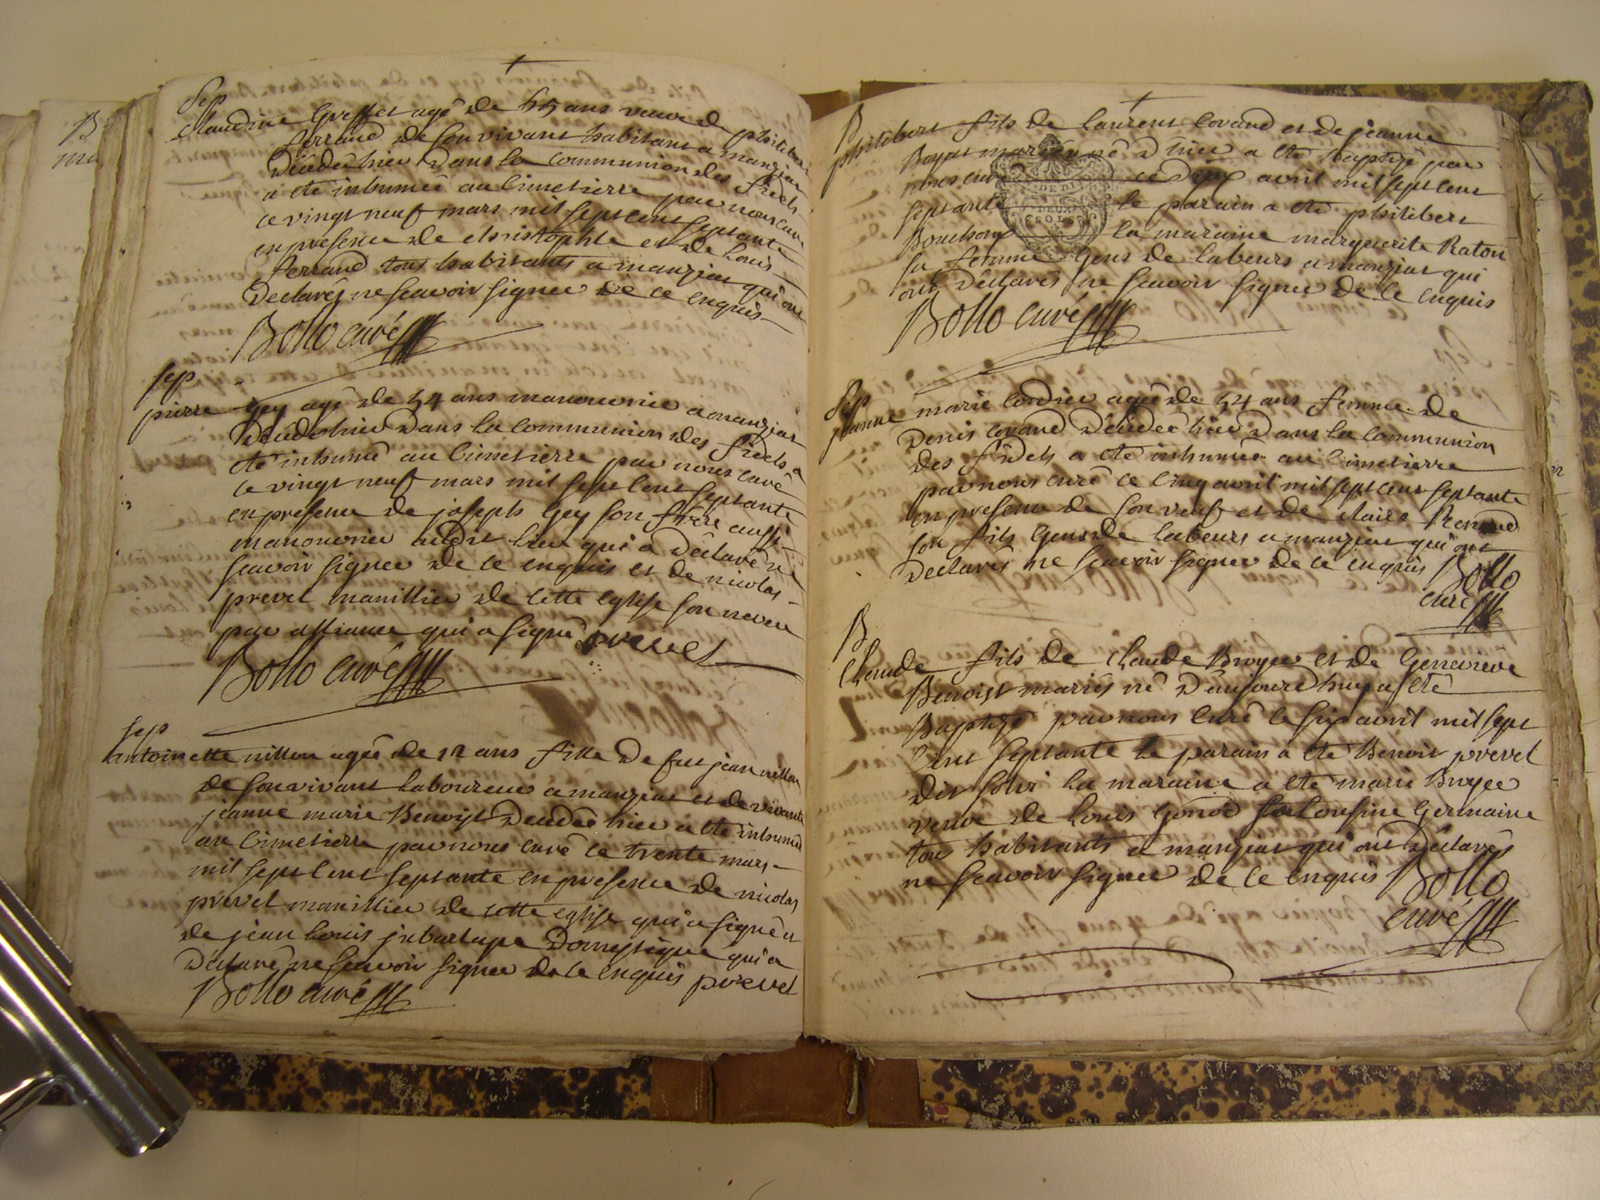 Sep
Claudine Greffet agé de 45 ans veuve de philibert
ferrand de son vivant habitant a manziat
décédée hier dans la communion des fidels
a été inhumée au Cimetierre par nous curé
ce vingt neuf mars mil sept cent septante
en presence de christophle et de Louis
ferrand tous habitants a manziat qui ont
declarés ne scavoir signer de ce enquis
Bollo curé
Sep
pierre Gey agé de 54 ans manouvrier a manziat
décédé hier dans la communion des fidels a
été inhumé au Cimetierre par nous curé
ce vingt neuf mars mil sept cent septante
en presence de joseph Gey son frere aussi
manouvrier audit lieu qui a déclaré ne
scavoir signer de ce enquis et de nicolas
prevel manillier de cette eglise son neveu
par alliance qui a signé prevel
Bollo curé
Sep
antoinette nillon agée de 12 ans fille de feu jean nillon
de son vivant laboureur a manziat et de vivante
jeanne marie Benoist décédée hier a été inhumée
au Cimetierre par nous curé ce trente mars
mil sept cent septante en presence de nicolas
prevel manillier de cette eglise qui a signé et
de jean louis domestique qui a
declaré ne scavoir signer de ce enquis prevel
Bollo curé
B
philibert fils de laurent Covand et de jeanne
Boyat mariés né d'hier a été baptizé par
nous curé ce deux avril mil sept cent
septante le parain a été philibert
Bouchoux la maraine marguerite Raton
sa femme Gens de labeurs a manziat qui
ont declarés ne scavoir signer de ce enquis
Bollo curé
Sep
jeanne marie Cordier agée de 54 ans femme de
Denis Covand décédée hier dans la communion
des fidels a été inhumée au Cimetierre
par nous curé ce cinq avril mil sept cent septante
en presence de son veuf et de claire Renaud
son fils Gens de labeurs a manziat qui ont
declarés ne scavoir signer de ce enquis Bollo
curé
B
Claude fils de claude Broyer et de Genevieve
Benoist mariés né d'aujourd'huy a été
Baptizé par nous curé le six avril mil sept
cent septante le parain a été Benoit prevel
dit la maraine a été marie Broyer
veuve de Louis Gonod sa Cousine Germaine
tous habitants a manziat qui ont declarés
ne scavoir signer de ce enquis Bollo
curé